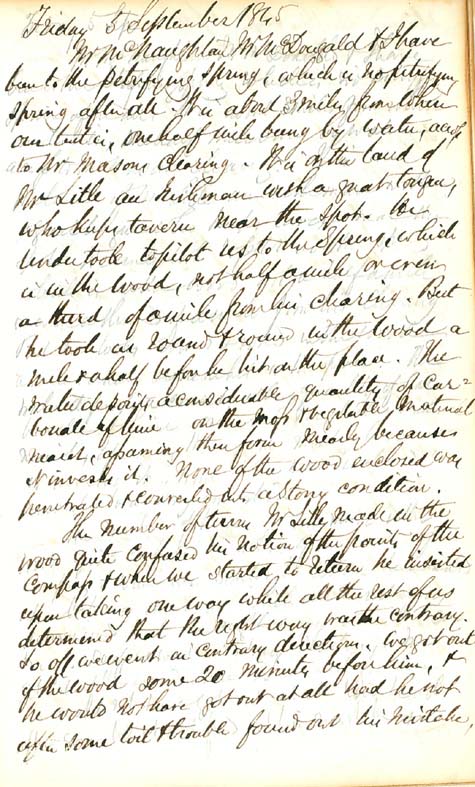 Friday 5 September 1845
Mr McNaughtan Mr McDougald & I have
been to the petrifying Spring, which is no petrifying
Spring after all. It is about 3 miles from where
our tent is, one half mile being by water, across
to Mr Masons Clearing. It is on the land of
Mr Litle an Irishman with a great tongue,
who keeps tavern near the spot. He
undertook to pilot us to the Spring, which
is in the wood, not half a mile or even
a third of a mile from his clearing. But
he took us round & round in the wood a
mile & a half before he hit on the place. The
water deposits a considerable quantity of Car=
bonate of lime on the moss & vegetable material
near it, assuming their form merely because
it invests it. None of the wood enclosed was
penetrated & converted into a Stony condition.
The number of turns Mr Litle made in the
wood quite confused his notion of the points of the
Compass & when we started to return he insisted
upon taking one way while all the rest of us
determined that the right way was the contrary.
So off we went in contrary directions. We got out
of the wood some 20 minutes before him, &
he would not have got out at all had he not
after some toil & trouble found out his mistake,